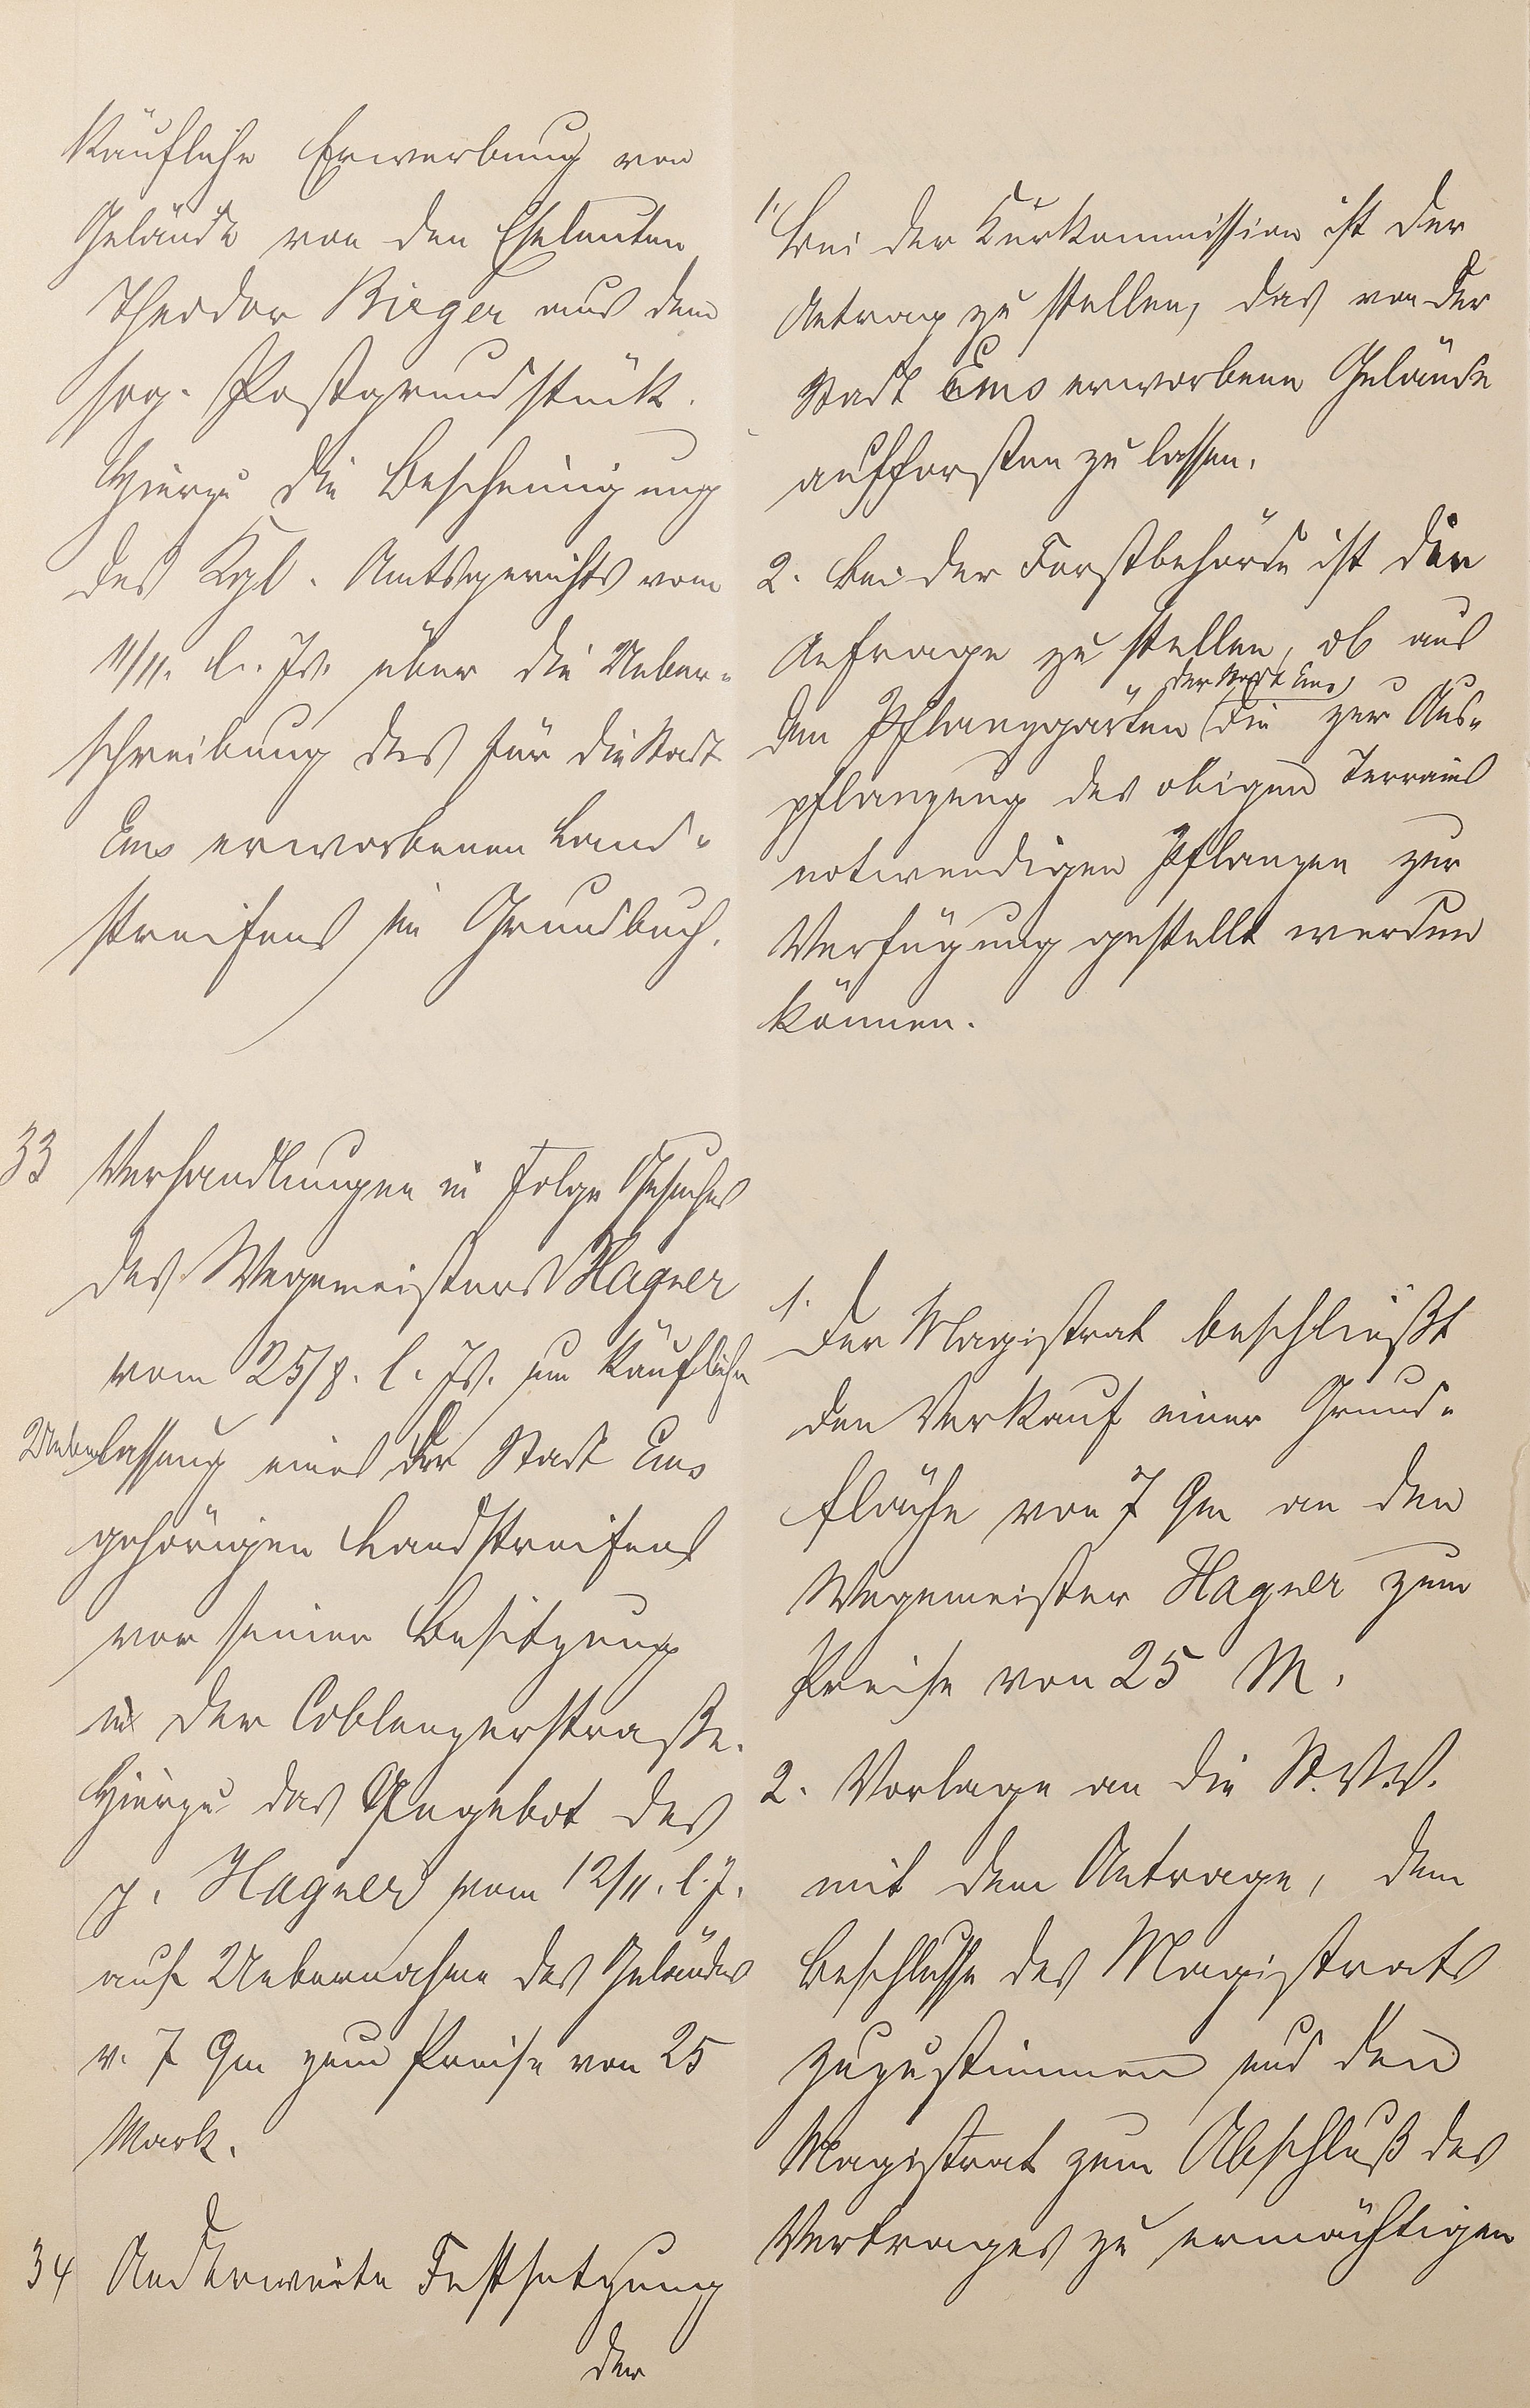 Käufliche Erwerbung von
Gelände von den Eheleuten
Theodor Bieger aus dem
sog. Postgrundstück.
Hierzu die Bescheinigung
des Kgl. Amtsgerichts vom
11/11. l. Js. über die Ueber-
schreibung des für die Stadt
Ems erworbenen Land-
streifens im Grundbuch.
1. Bei der Kurkommission ist der
Antrag zu stellen, das von der
Stadt Ems erworbene Gelände
aufforsten zu lassen.
2. Bei der Forstbehörde ist die
Anfrage zu stellen, ob aus
der Stadt Ems
den Pflanzgärten die zur Aus-
pflanzung des obigen Terrains
notwendigen Pflanzen zur
Verfügung gestellt werden
können.
33 Verhandlungen in Folge Gesuches
des Wegemeisters Hagner
vom 25/8. l. Js. um käufliche
Ueberlassung eines der Stadt Ems
gehörigen Landstreifens
vor seiner Besitzung
in der Coblenzerstraße.
Hierzu das Angebot des
p. Hagner vom 12/11. l. J.
auf Uebernahme des Geländes
v. 7 Qm zum Preise von 25
Mark.
1. Der Magistrat beschließt
den Verkauf einer Grund-
fläche von 7 Qm an den
Wegemeister Hagner zum
Preise von 25 M.
2. Vorlage an die St.V.V.
mit dem Antrage, dem
Beschlusse des Magistrats
zuzustimmen und den
Magistrat zum Abschluß des
Vertrages zu ermächtigen
34 Anderweite Festsetzung
der